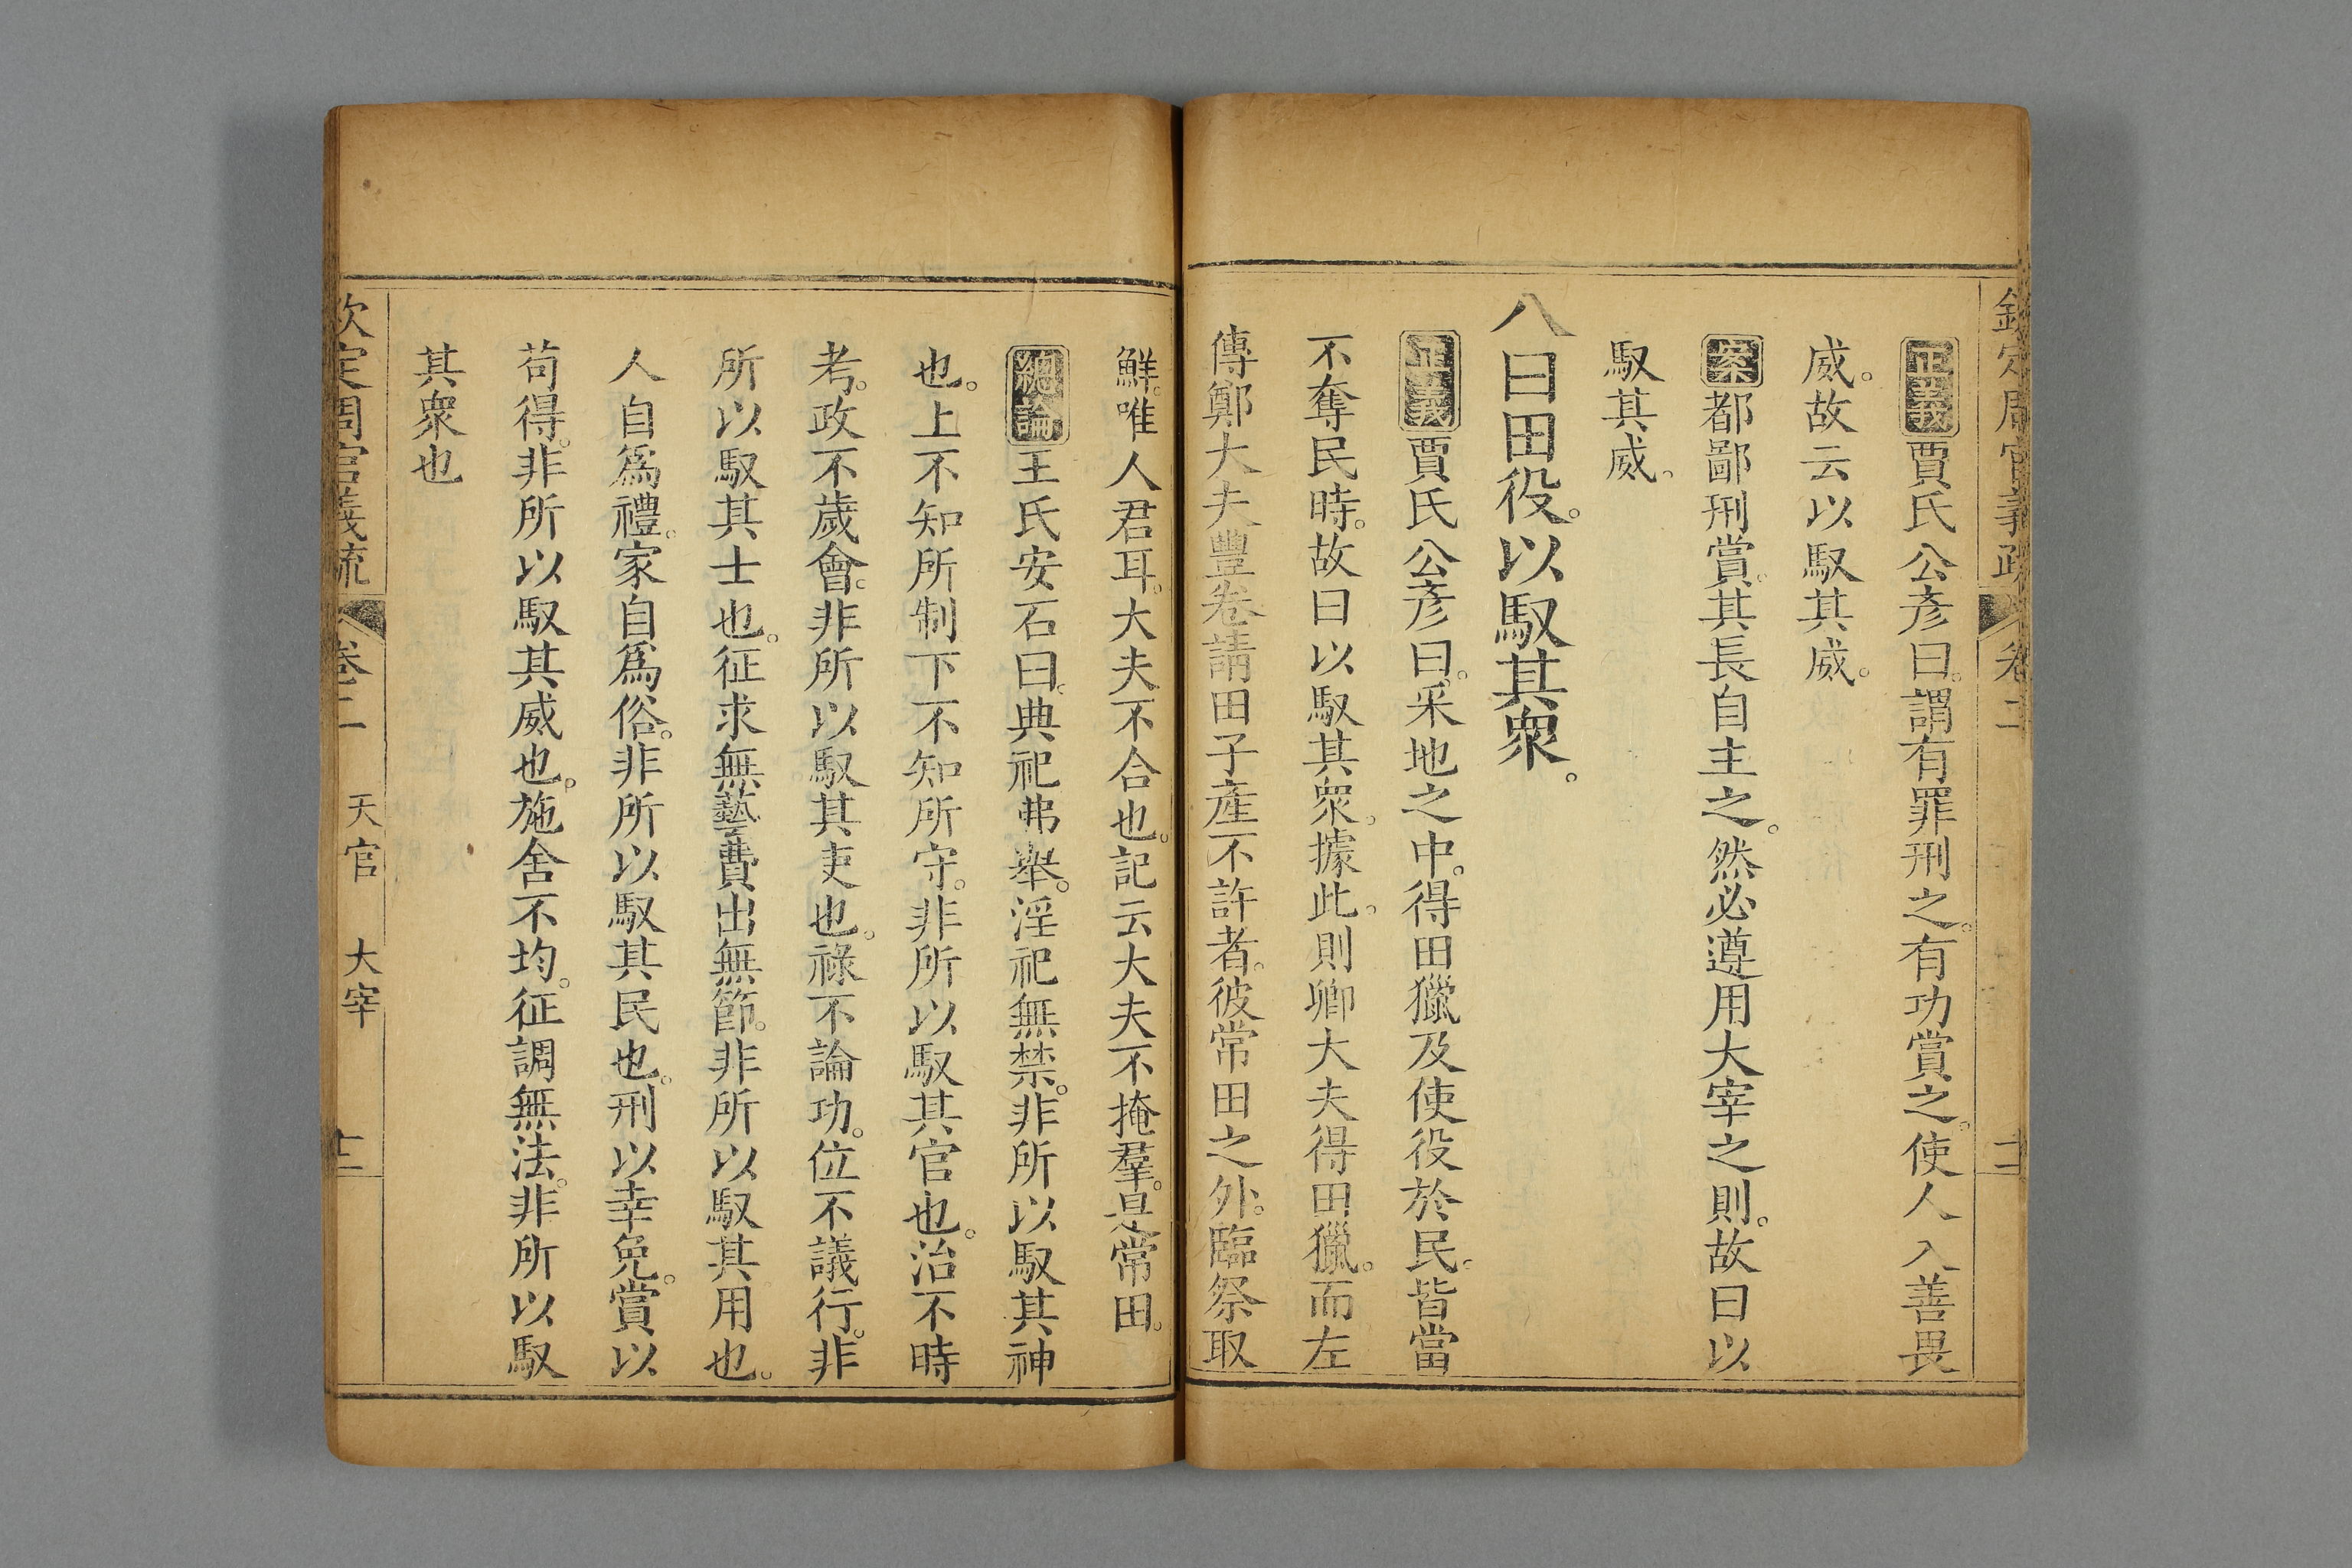 欽定周官義疏 卷二 十一
正義賈氏公彥曰。謂有罪刑之。有功賞之。使人入善畏
威。故云以馭其威。
案都鄙刑賞。其長自主之。然必遵用大宰之則。故曰以
馭其威。
八曰田役。以馭其衆。
正義賈氏公彥曰。采地之中。得田獵及使役於民。皆當
不奪民時。故曰以馭其衆。據此。則卿大夫得田獵。而左
傳鄭大夫豐卷請田子產不許者。彼常田之外。臨祭取
鮮。唯人君耳。大夫不合也。記云大夫不掩羣。是常田。
總論王氏安石曰。典祀弗舉。淫祀無禁。非所以馭其神
也。上不知所制下不知所守。非所以馭其官也。治不時
考。政不歲會。非所以馭其吏也。祿不論功。位不議行。非
所以馭其士也。征求無藝費出無節。非所以馭其用也。
人自爲禮。家自爲俗。非所以馭其民也。刑以幸免。賞以
苟得。非所以馭其威也。施舍不均。征調無法。非所以馭
其衆也
欽定周官義疏 卷二 天官 大宰 十二